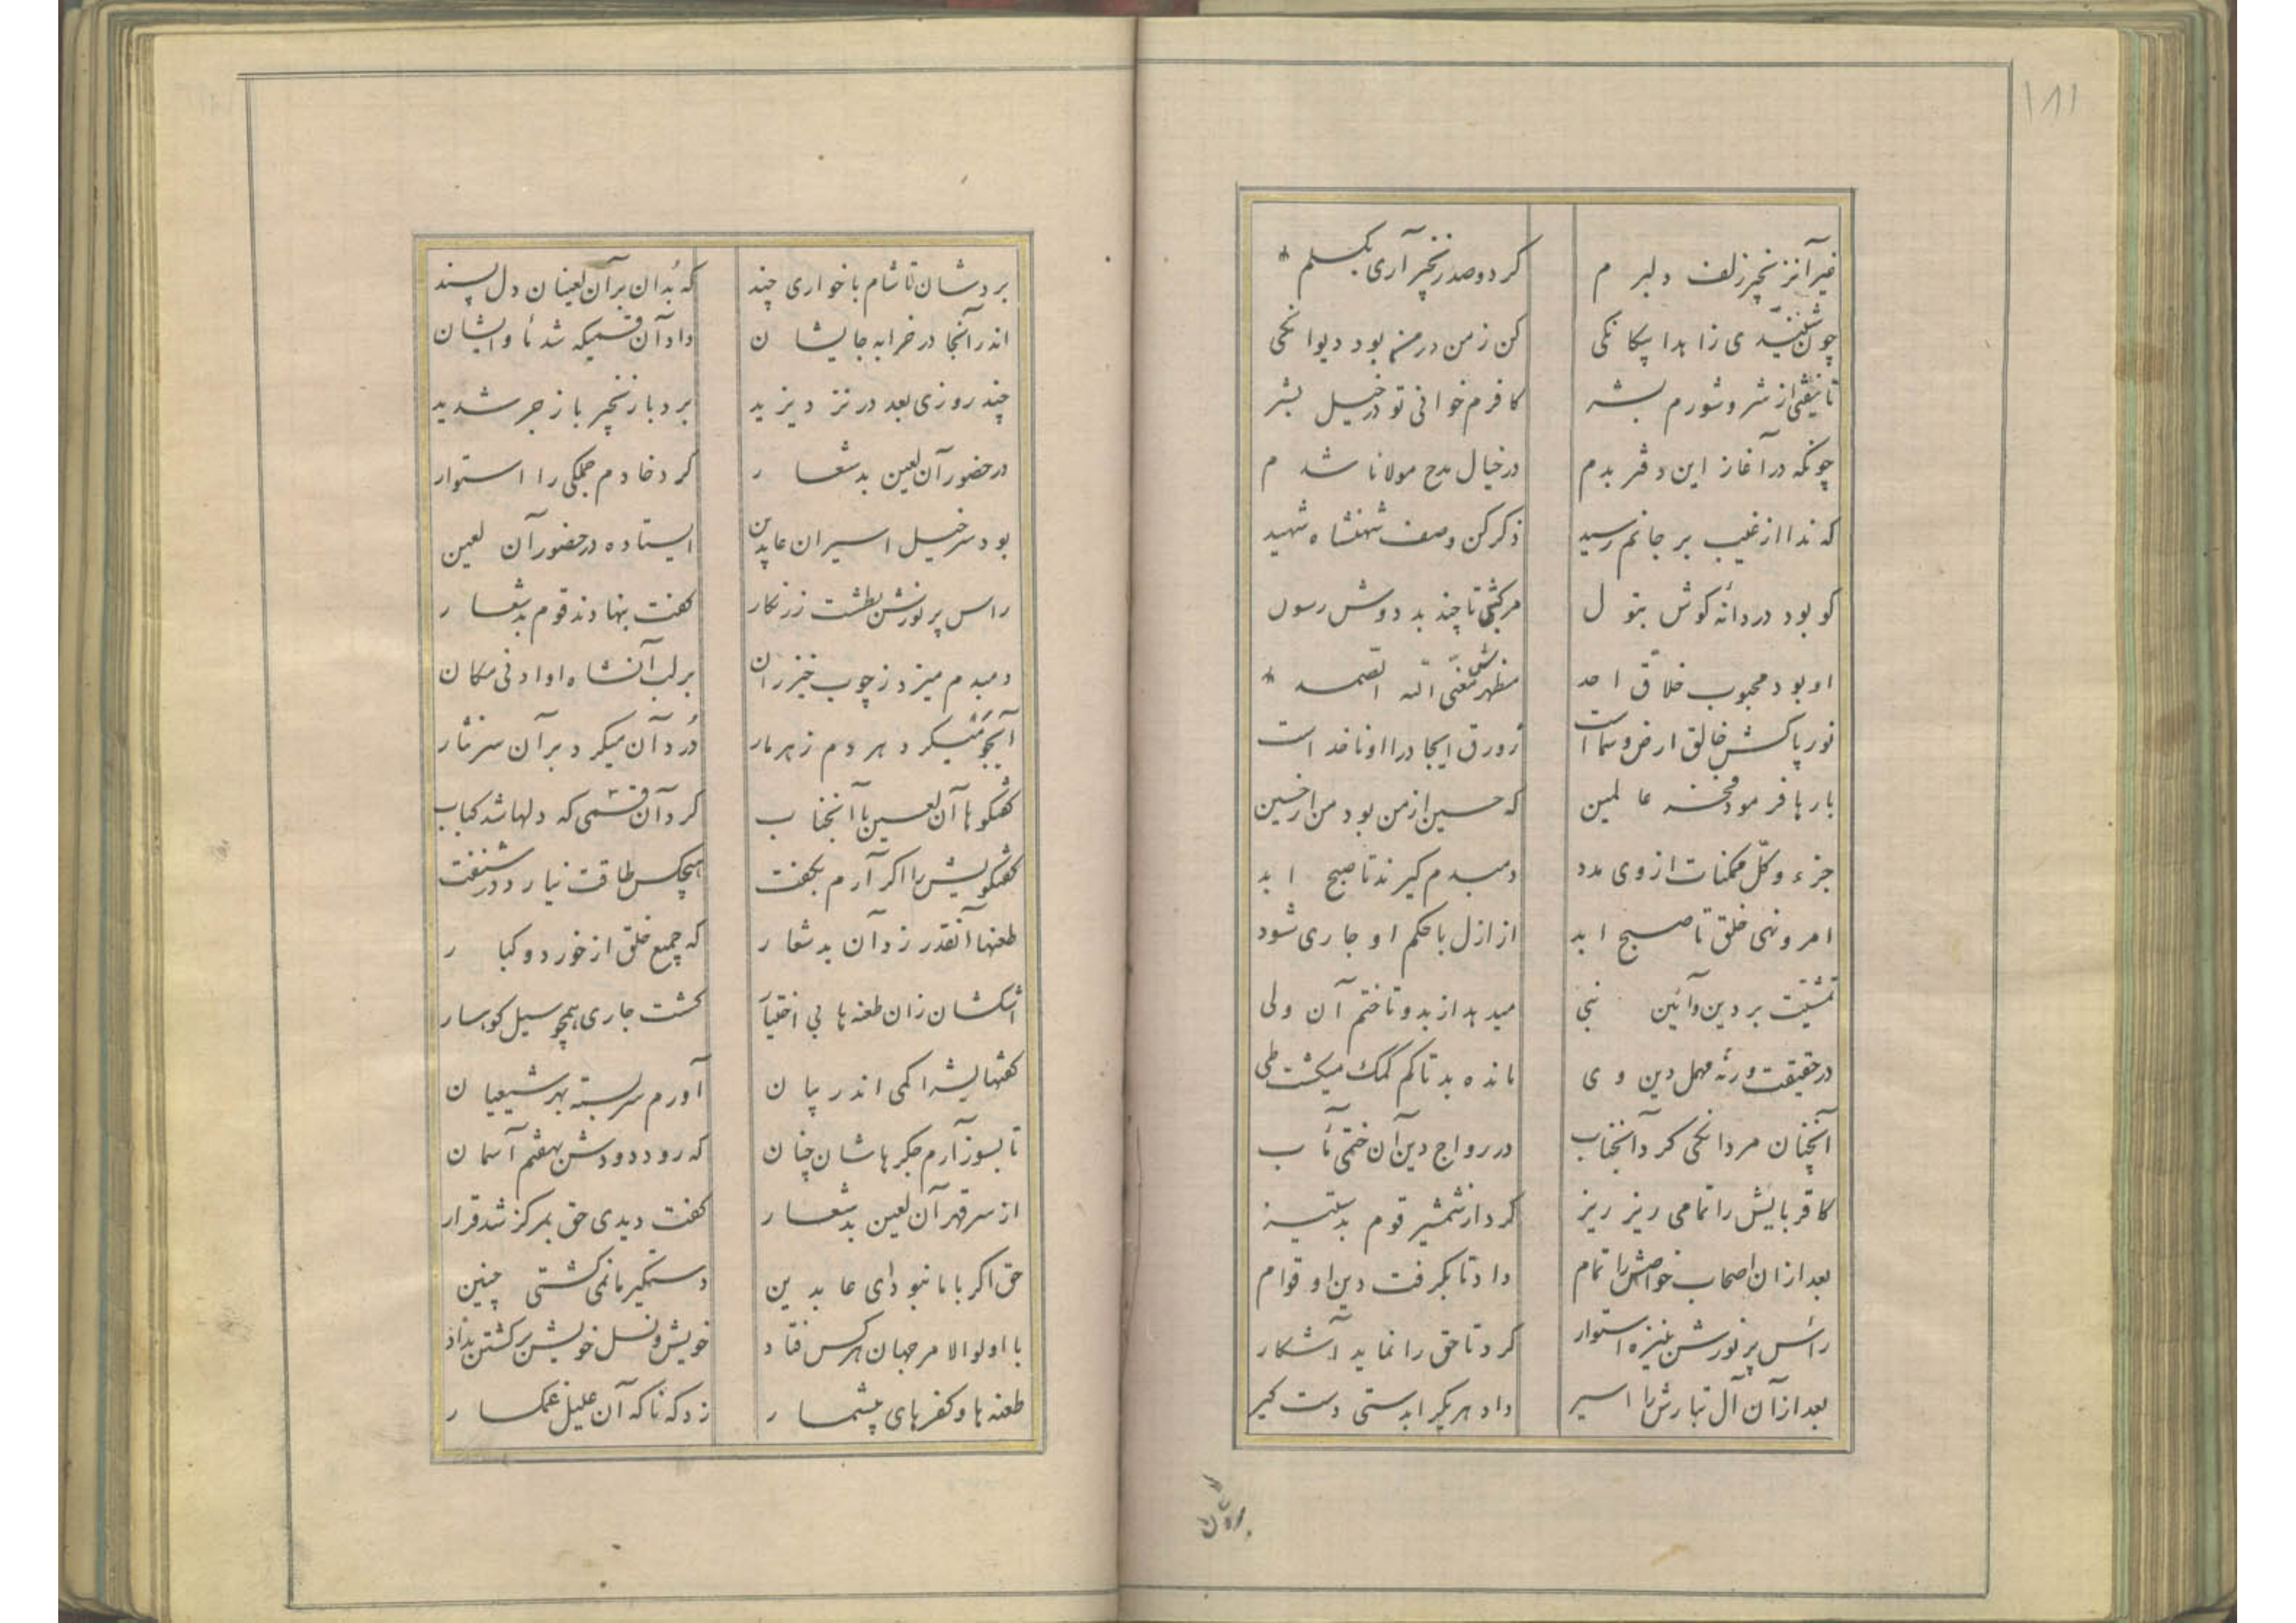 ۱۸۱
غیر آن زنجیر زلف دلبرم گر دو صد زنجیر آری بگسلم
چون شنیدی زاهدا یکانگی کن ز من در منه بود دیوانگی
تا نیفتی از شر و شورم بشر کافرم خوانی تو در خیل بشر
چونکه در آغاز این دفتر بدم در خیال مدح مولانا شدم
که ندا از غیب بر جانم رسید ذکر کن وصف شهنشاه شهید
کو بود دردانه گوش بتول مرکبی تا چند بد دوش رسول
او بود محبوب خلاق احد مظهرش معنی الله الصمد
نور پاکش خالق ارض و سماست زورق ایجاد را او ناخداست
بارها فرمود فخر عالمین که حسین از من بود من از حسین
جزء و کل ممکنات از وی مدد دمبدم گیرند تا صبح ابد
امر و نهی خلق تا صبح ابد از ازل با حکم او جاری شود
تمشیت بر دین و آئین نبی میدهد از بدو تا ختم آن ولی
در حقیقت ورنه مهمل دین وی مانده بد تا کم کمک میگشت طی
آنچنان مردانگی کرد آنجناب در رواج دین آن ختمی مآب
کاقربایش را تمامی ریز ریز کرد از شمشیر قوم بدستیز
بعد از آن اصحاب خواصش را تمام داد تا بگرفت دین او قوام
رأس پر نورش بنیزه استوار کرد تا حق را نماید آشکار
بعد از آن آل تبارش را اسیر داد هر یک را بدستی دستگیر
بردشان
بردشان تا شام با خواری چند که بُد آن بر آن لعینان دل پسند
اندر آنجا در خرابه جایشان داد آن قسمیکه شد مأوایشان
چند روزی بعد در نزد یزید برد با زنجیر با زجر شدید
در حضور آن لعین بدشعار کرد خادم جملگی را استوار
بود سرخیل اسیران عابدین ایستاده در حضور آن لعین
راس پر نورش بطشت زرنگار گفت بنهادند قوم بدشعار
دمبدم میزد ز چوب خیزران بر لب آنشاه او ادنی مکان
آبجو میکرد هر دم زهرمار دُرد آن میکرد بر آن سر نثار
گفتگوها آن لعین با آنجناب کرد آن قسمی که دلها شد کباب
گفتگویش را اگر آرم بگفت هیچکس طاقت نیارد در شنفت
طعنها آنقدر زد آن بدشعار که جمیع خلق از خورد و کبار
اشکشان زان طعنه ها بی اختیار گشت جاری همچو سیل کوهسار
گفتهایش را کمی اندر بیان آورم سربسته بهر شیعیان
تا بسوز آرم جگرهاشان چنان که رود دودش بهفتم آسمان
از سر قهر آن لعین بدشعار گفت دیدی حق بمرکز شد قرار
حق اگر با ما نبود ای عابدین دستگیر ما نمی گشتی چنین
با اولوالامر جهان هر کس فتاد خویش و نسل خویش بر کشتن بداد
طعنه ها و کفرهای بیشمار زد که ناگه آن علیل غمگسار